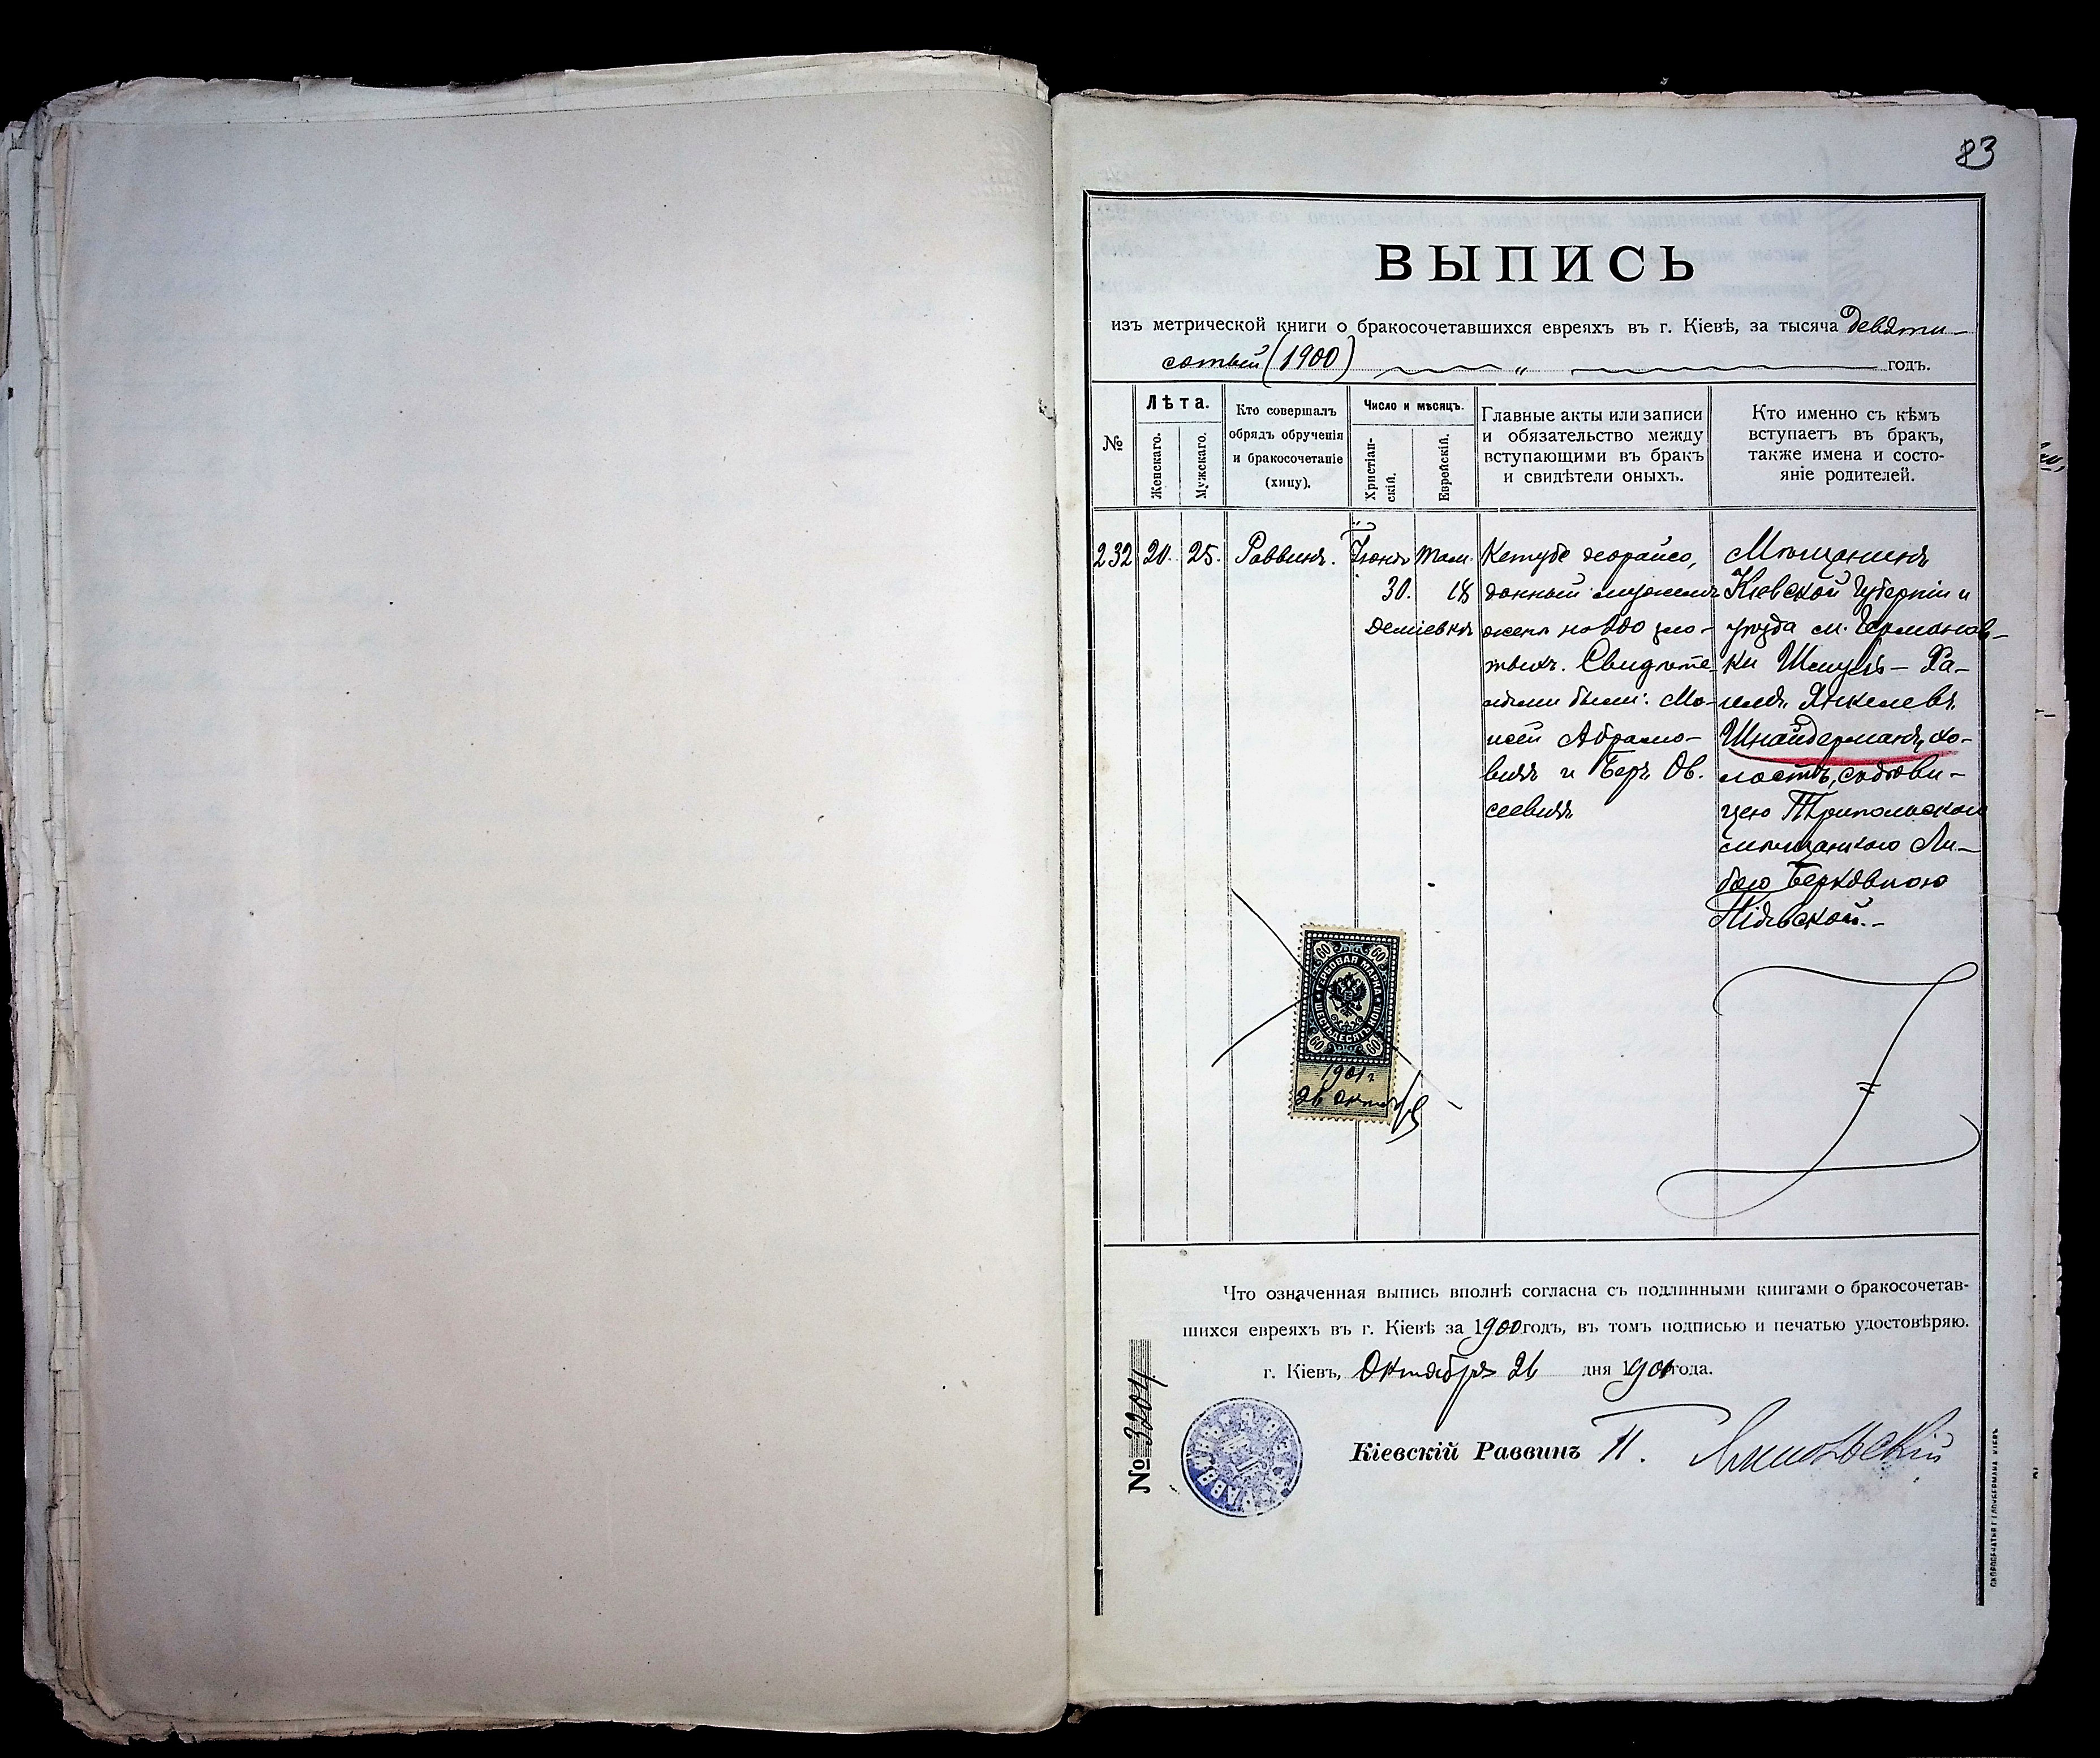 83
ВЫПИСЬ
изъ метрической книги о бракосочетавшихся евреяхъ въ г. Кіевѣ, за тысяча девяти-
сотый (1900) " годъ.
№
Лѣта.
Женскаго.
Мужскаго.
Кто совершалъ
обрядъ обрученія
и бракосочетаніе
(хипу).
Число и мѣсяцъ.
Христіан-
скій.
Еврейскій.
Главные акты или записи
и обязательство между
вступающими въ бракъ
и свидѣтели оныхъ.
Кто именно съ кѣмъ
вступаетъ въ бракъ,
также имена и состо-
яніе родителей.
232
20.
25.
Раввинъ.
Іюнь
30.
Там.
18
Деміевка
Кетубе деорайсо,
данный мужемъ
женѣ на 200 зло-
тыхъ. Свидѣте-
лями были: Мо-
исей Абрамо-
вичъ и Беръ Ов-
сеевичъ
Мѣщанинъ
Кіевской губерніи и
уѣзда м. Германов-
ки Шмуль-Ха-
имъ Янкелевъ
Шнайдерманъ, хо-
лостъ, съ дѣви-
цею Трипольскою
мѣщанкою Ли-
бою Берковною
ГЕРБОВАЯ МАРКА
ШЕСТЬДЕСЯТЪ КОП.
60 60
60 60
1901 г
26 октяб
Что означенная выпись вполнѣ согласна съ подлинными книгами о бракосочетав-
шихся евреяхъ въ г. Кіевѣ за 1900 годъ, въ томъ подписью и печатью удостовѣряю.
г. Кіевъ, Октября 26 дня 1901 года.
№ 3204
Кіевскій Раввинъ П. Ямпольскій
СКОРОПЕЧАТНЯ Г. ГЛУЗБЕРМАНА. КІЕВЪ.